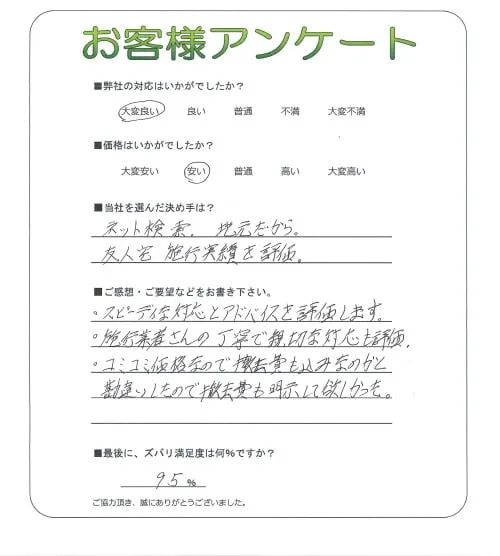 お客様アンケート
■弊社の対応はいかがでしたか？
大変良い 良い 普通 不満 大変不満
■価格はいかがでしたか？
大変安い 安い 普通 高い 大変高い
■当社を選んだ決め手は？
ネット検索。地元だから。
友人宅 施行実績を評価。
■ご感想・ご要望などをお書き下さい。
・スピーディな対応とアドバイスを評価します。
・施行業者さんの丁寧で親切な対応も評価。
・コミコミ価格なので撤去費も込みなのかと
勘違いしたので撤去費も明示して欲しかった。
■最後に、ズバリ満足度は何％ですか？
95 ％
ご協力頂き、誠にありがとうございました。